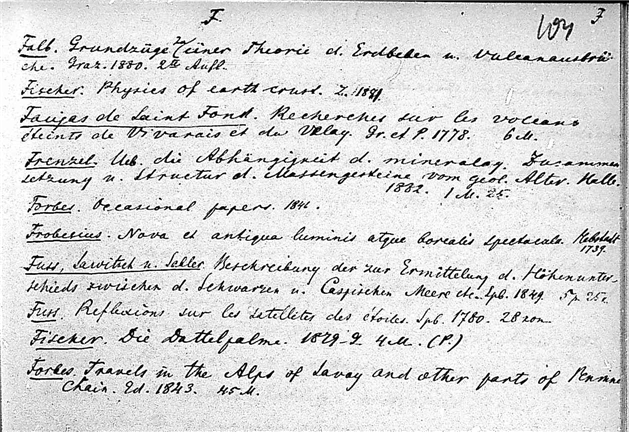 F
104 F
Falb. Grundzüge zu einer Theorie d. Erdbeben u. Vulcanausbrü-
che. Graz. 1880. 2te Aufl.
Fischer. Physics of earth crust. L. 1881.
Faujas de Saint Fond. Recherches sur les volcans
éteints de Vivarais et du Velay. Gr. et P. 1778. 6 M.
Frenzel. Ueb. die Abhängigkeit d. mineralog. Zusammen
setzung u. Structur d. Massengesteine vom geol. Alter. Halle.
1882. 1 M. 25.
Forbes. Occasional papers. 1846.
Frobesius. Nova et antiqua luminis atque borealis spectacula. Helmstadt
1739.
Fuss, Sawitsch u. Sabler. Beschreibung der zur Ermittelung d. Höhenunter-
schieds zwischen d. Schwarzen u. Caspischen Meere etc. Spb. 1849. 5 p. 25 c.
Fuss. Reflexions sur les satellites des étoiles. Spb. 1780. 28
Fischer. Die Dattelpalme. 4 M. (P.)
Forbes. Travels in the Alps of Savoy and other parts of Pennine
Chain. Ed. 1843. 45 M.